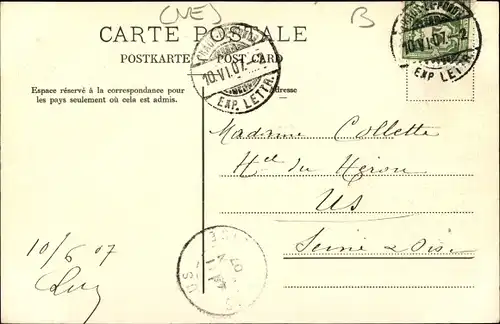 (NE)
B
CARTE POSTALE
POSTKARTE
POST CARD
10.VI.07.
EXP. LETTR.
10.VI.07.-2
EXP. LETTR.
Espace réservé à la correspondance pour
les pays seulement où cela est admis.
Adresse
Madame Collette
Hel du Héron
US
Seine & Oise
10/6 07